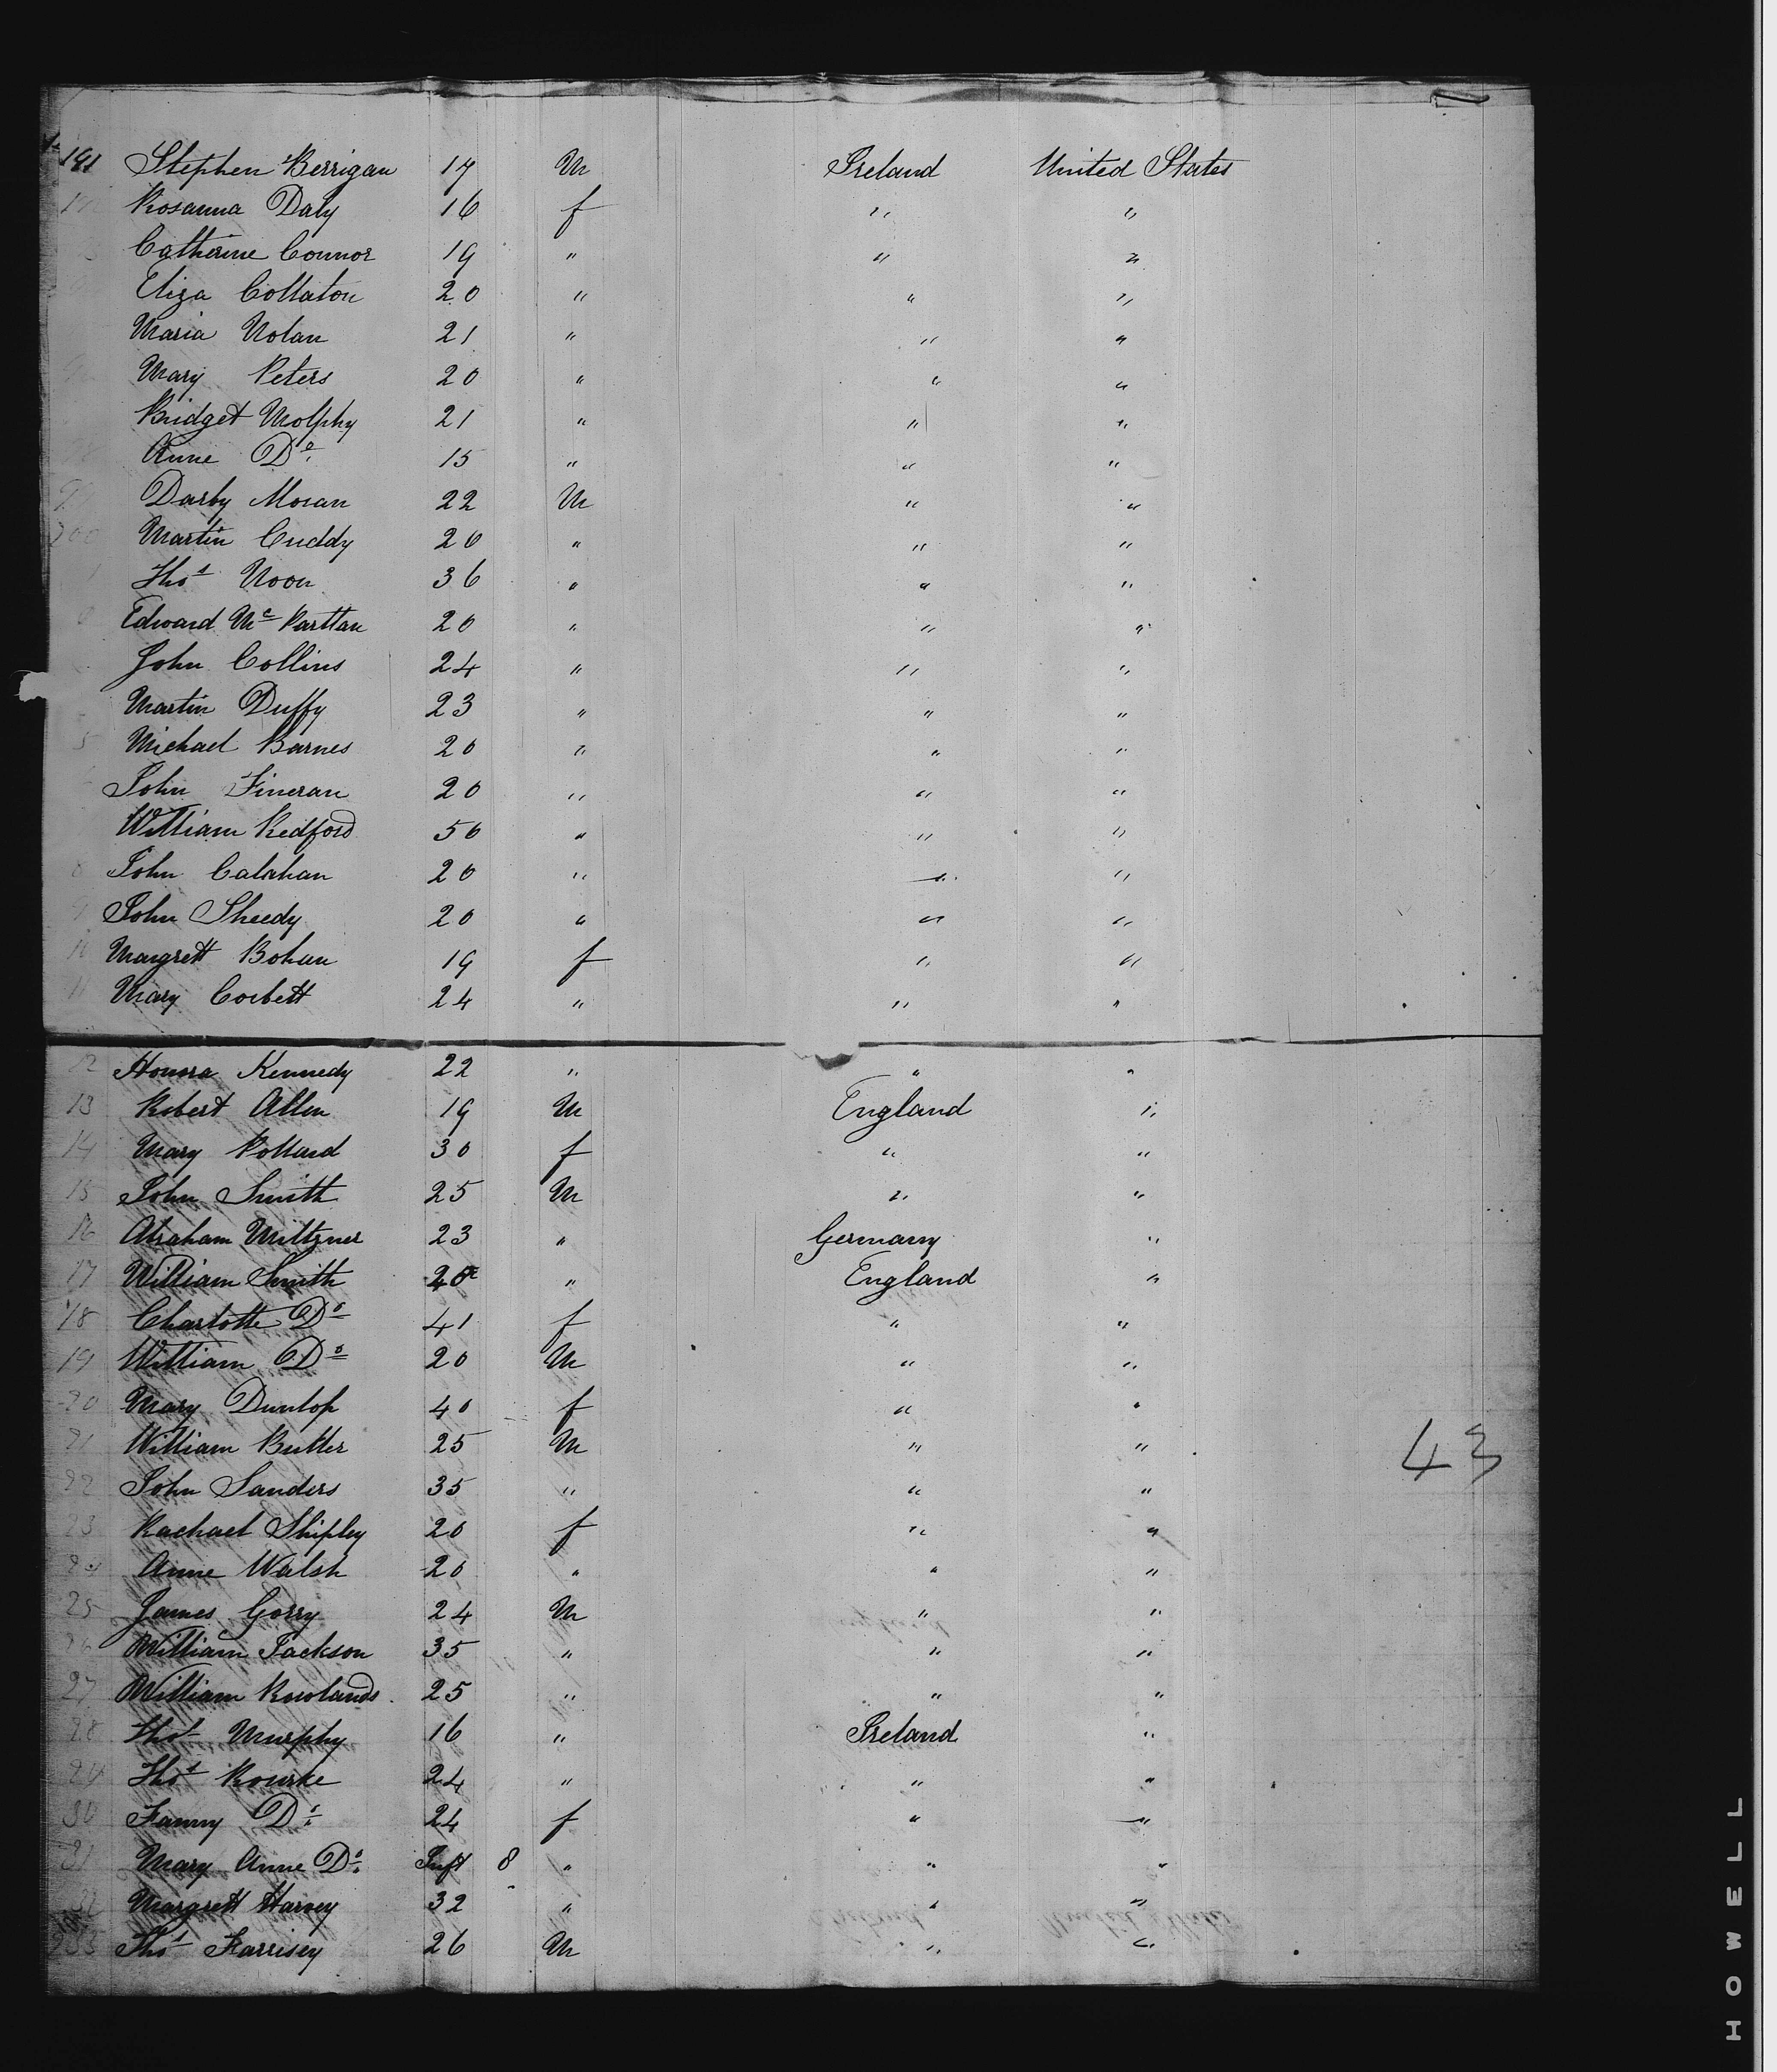 191 Stephen Berrigan 17 M Ireland United States
Rosanna Daly 16 f " "
Catherine Connor 19 " " "
Eliza Collaton 20 " " "
Maria Nolan 21 " " "
Mary Peters 20 " " "
Bridget Molphy 21 " " "
Anne Do. 15 " " "
Darby Moran 22 M " "
200 Martin Cuddy 20 " " "
Thos Noon 36 " " "
Edward Mc Parttan 20 " " "
John Collins 24 " " "
Martin Duffy 23 " " "
5 Michael Barnes 20 " " "
John Fineran 20 " " "
William Redford 50 " " "
8 John Calahan 20 " " "
9 John Sheedy 20 " " "
10 Margrett Bohan 19 f " "
11 Mary Corbett 24 " " "
12 Honora Kennedy 22 " " "
13 Robert Allen 19 M England "
14 Mary Pollard 30 f " "
15 John Smith 25 M " "
16 Abraham Miltzner 23 " Germany "
17 William Smith 40 " England "
18 Charlotte Do 41 f " "
19 William Do 20 M " "
20 Mary Dunlop 40 f " "
21 William Butler 25 M " "
22 John Sanders 35 " " "
23 Rachael Shipley 20 f " "
24 Anne Walsh 20 " " "
25 James Gorry 24 M " "
26 William Jackson 35 " " "
27 William Rowlands 25 " " "
28 Thos Murphy 16 " Ireland "
29 Thos Rourke 24 " " "
30 Fanny Do. 24 f " "
31 Mary Anne Do. Inft 8 " " "
32 Margrett Harvey 32 " " "
233 Thos Farrisey 26 M " "
43
HOWELL